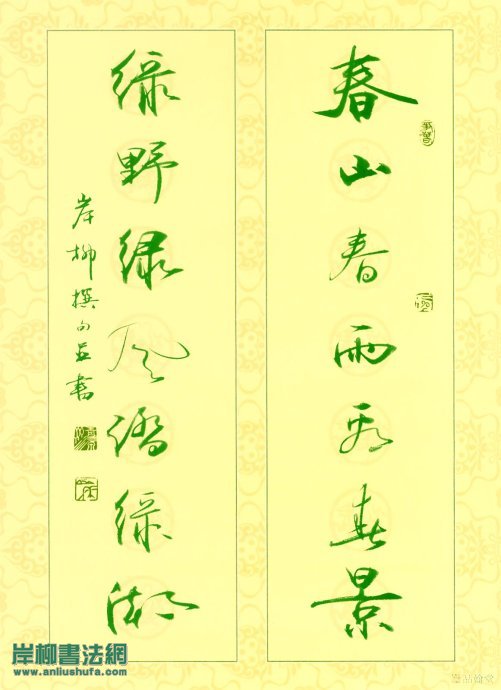 春山春雨春景
绿野绿风绿湖
岸柳撰句并書
岸柳書法網
www.anliushufa.com